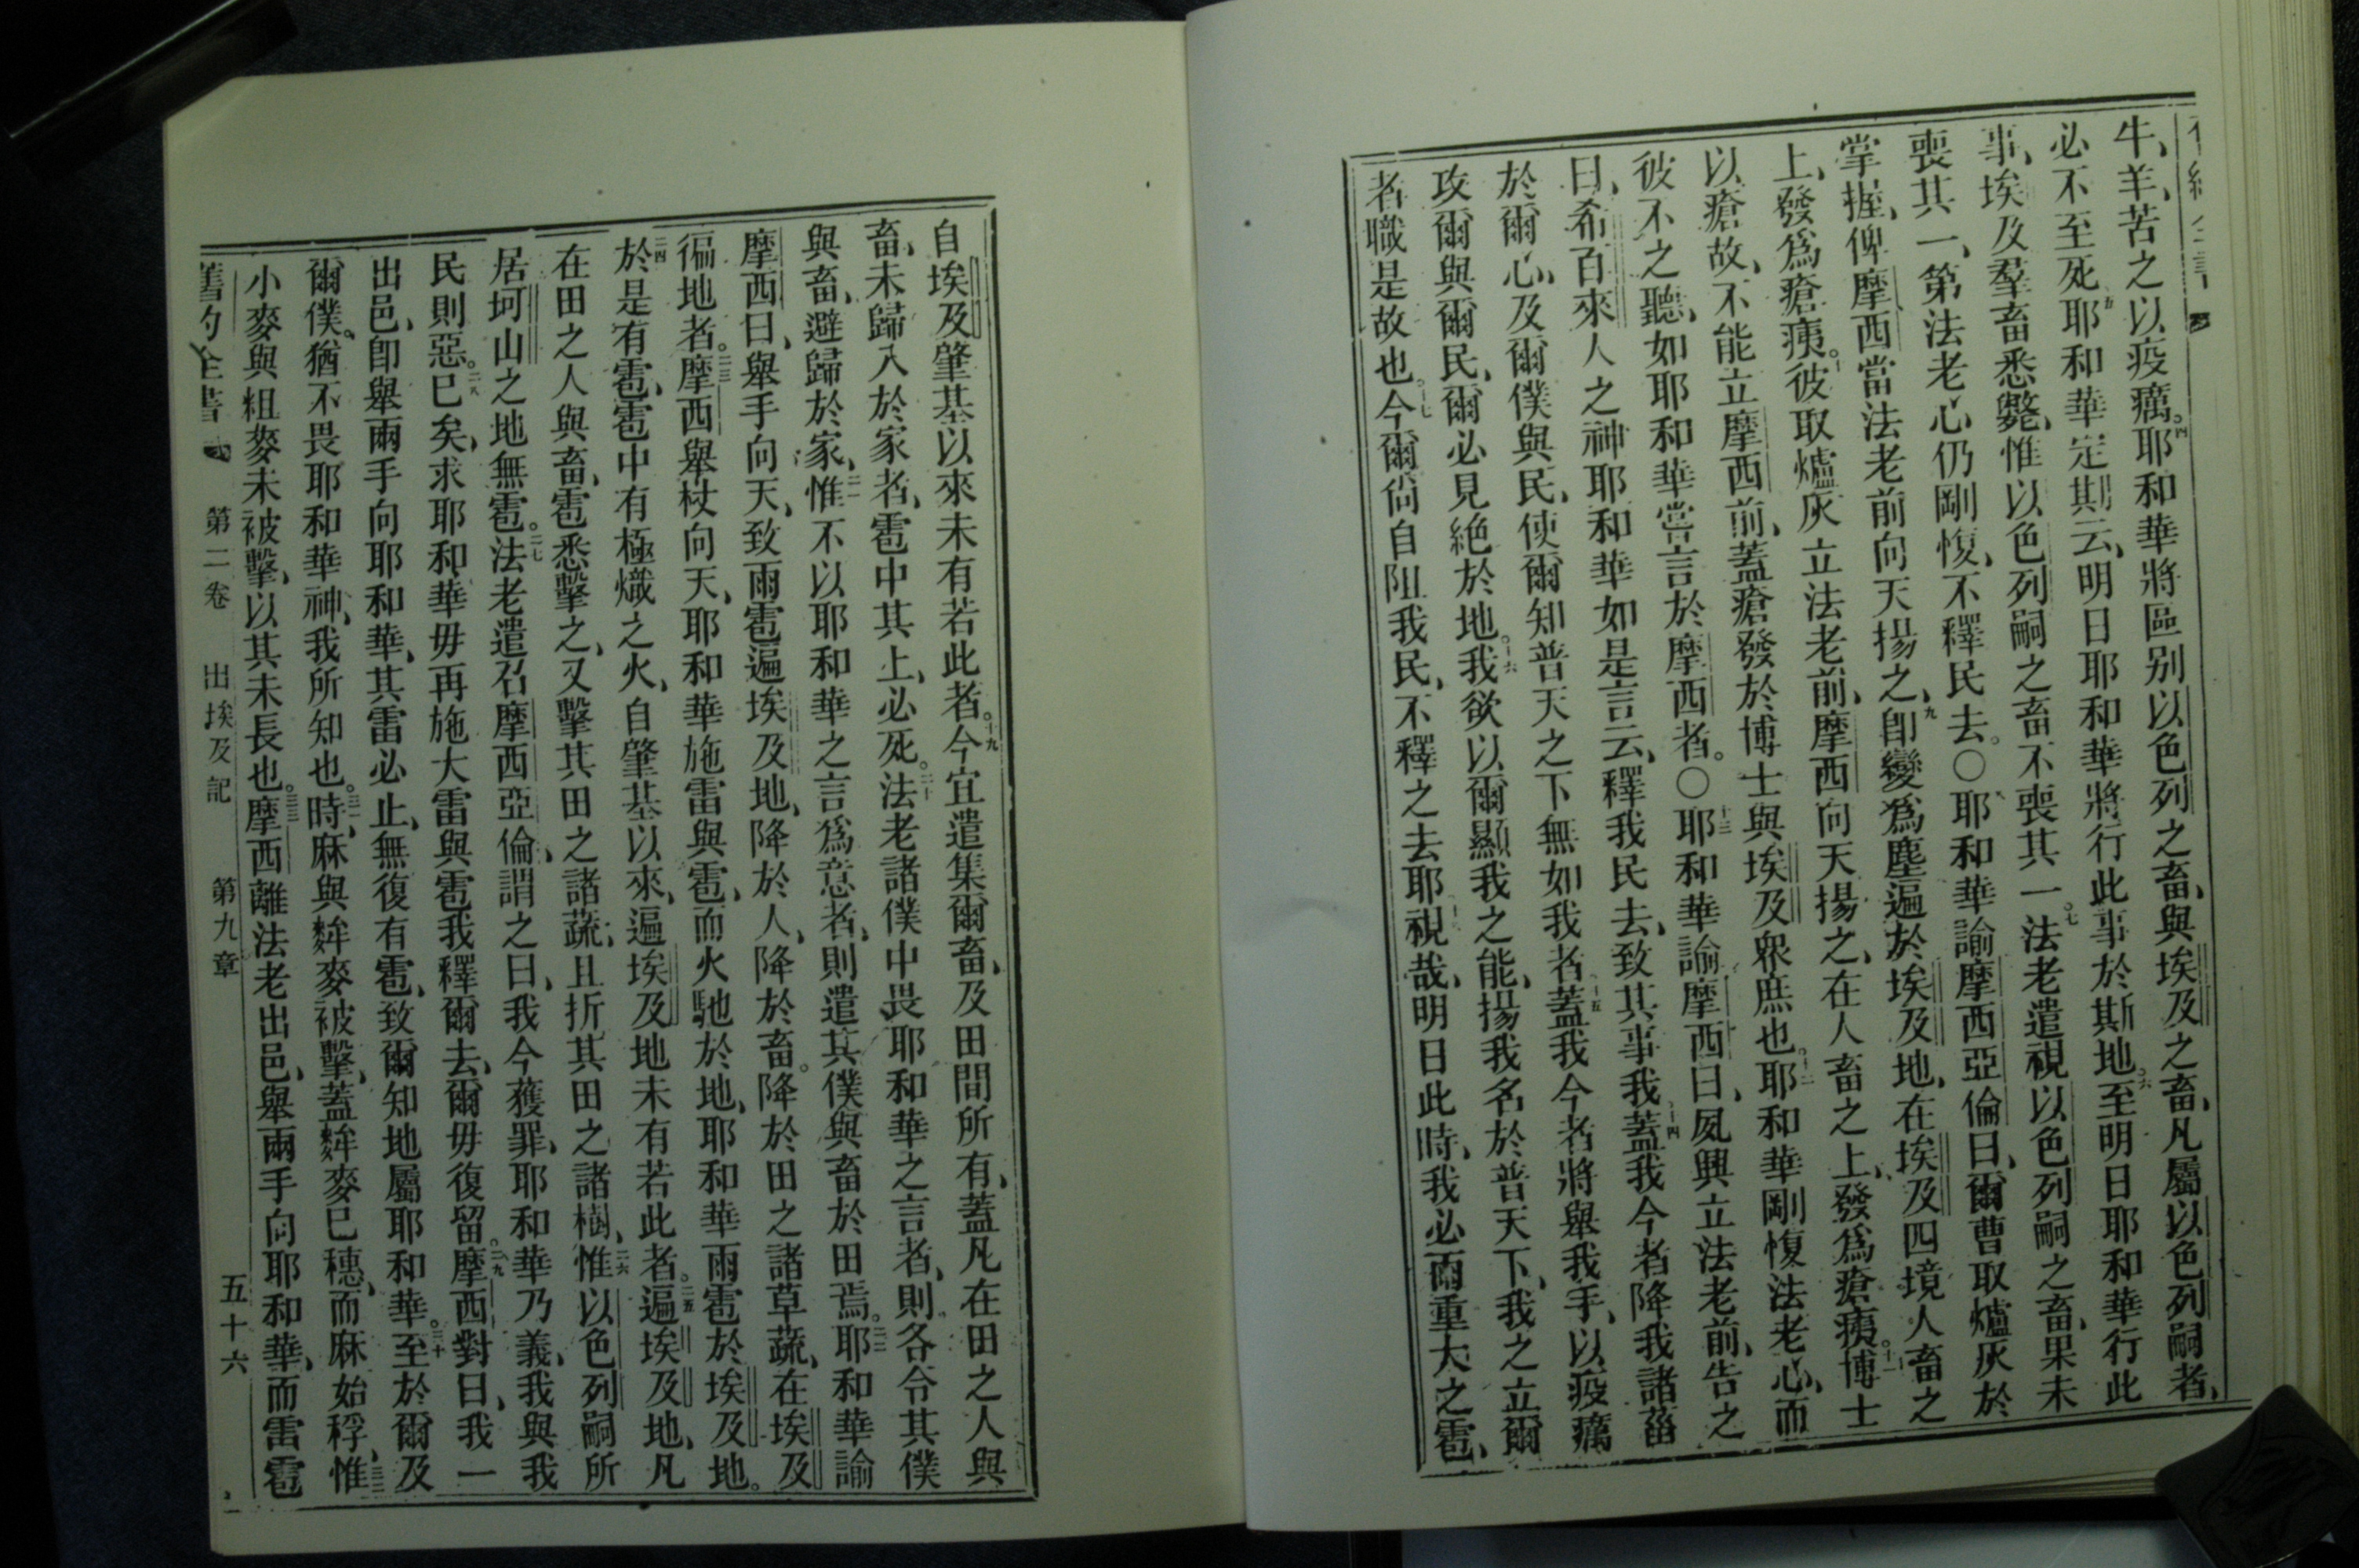 牛、羊、苦之以疫癘。四耶和華將區别以色列之畜、與埃及之畜、凡屬以色列嗣者、
必不至死。五耶和華定期云、明日耶和華將行此事於斯地。六至明日耶和華行此
事、埃及羣畜悉斃、惟以色列嗣之畜不喪其一。七法老遣視以色列嗣之畜、果未
喪其一、第法老心仍剛愎、不釋民去。〇八耶和華諭摩西亞倫曰、爾曹取爐灰於
掌握、俾摩西當法老前向天揚之、九卽變爲塵遍於埃及地、在埃及四境人畜之
上、發爲瘡痍。十彼取爐灰立法老前、摩西向天揚之、在人畜之上、發爲瘡痍。十一博士
以瘡故、不能立摩西前、蓋瘡發於博士與埃及衆庶也。十二耶和華剛愎法老心、而
彼不之聽、如耶和華嘗言於摩西者。〇十三耶和華諭摩西曰、夙興立法老前、告之
曰、希百來人之神耶和華如是言云、釋我民去、致其事我、十四蓋我今者降我諸菑
於爾心、及爾僕與民、使爾知普天之下無如我者。十五蓋我今者將舉我手、以疫癘
攻爾與爾民、爾必見絶於地。十六我欲以爾顯我之能、揚我名於普天下、我之立爾
者職是故也。十七今爾尙自阻我民、不釋之去耶。十八視哉、明日此時、我必雨重大之雹、
自埃及肇基以來未有若此者。十九今宜遣集爾畜、及田間所有、蓋凡在田之人與
畜、未歸入於家者、雹中其上、必死。二十法老諸僕中畏耶和華之言者、則各令其僕
與畜、避歸於家、二一惟不以耶和華之言爲意者、則遣其僕與畜於田焉。二二耶和華諭
摩西曰、舉手向天、致雨雹遍埃及地、降於人、降於畜。降於田之諸草蔬、在埃及
徧地者。二三摩西舉杖向天、耶和華施雷與雹、而火馳於地、耶和華雨雹於埃及地。
二四於是有雹、雹中有極熾之火、自肇基以來、遍埃及地未有若此者。二五遍埃及地、凡
在田之人與畜、雹悉擊之、又擊其田之諸蔬、且折其田之諸樹、二六惟以色列嗣所
居坷山之地無雹。二七法老遣召摩西亞倫、謂之曰、我今獲罪、耶和華乃義、我與我
民則惡。二八已矣、求耶和華毋再施大雷與雹、我釋爾去、爾毋復留。二九摩西對曰、我一
出邑、卽舉兩手向耶和華、其雷必止、無復有雹、致爾知地屬耶和華。三十至於爾及
爾僕。猶不畏耶和華神、我所知也。三一時、麻與麰麥被擊、蓋麰麥已穗、而麻始稃、三二惟
小麥與粗麥未被擊、以其未長也。三三摩西離法老出邑、舉兩手向耶和華、而雷雹
舊約全書 第二卷 出埃及記 第九章 五十六